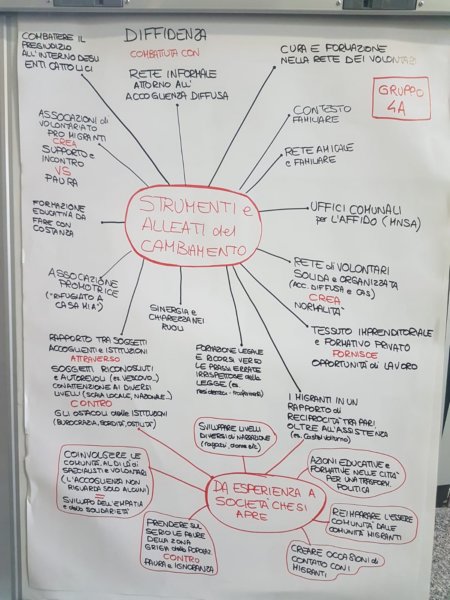 COMBATERE IL
PREGIUDIZIO
ALL'INTERNO DEGLI
ENTI CATTOLICI
DIFFIDENZA
COMBATTUTA CON
RETE INFORMALE
ATTORNO ALL'
ACCOGLIENZA DIFFUSA
CURA E FORMAZIONE
NELLA RETE DEI VOLONTARI
GRUPPO
4A
CONTESTO
FAMILIARE
RETE AMICALE
e FAMILARE
ASSOCAZIONI di
VOLONTARIATO
PRO MIGRANTI
CREA
SUPPORTO e
INCONTRO
VS
PAURA
STRUMENTI e
ALLEATI del
CAMBIAMENTO
FORMAZIONE
EDUCATIVA DA
FARE CON
COSTANZA
UFFICI COMUNALI
per L'AFFIDO (MNSA)
ASSOCAZIONE
PROMOTRICE
("RIFUGIATO A
CASA MIA")
RETE di VOLONTARI
SOLIDA e ORGANIZZATA
(ACC. DIFFUSA e CAS)
CREA
NORMALITA'
SINERGIA e
CHIAREZZA NEI
RUOLI
TESSUTO IMPRENDITORIALE
e FORMATIVO PRIVATO
FORNISCE
OPPORTUNITÀ di LAVORO
RAPPORTO TRA SOGGETTI
ACCOGLIENTI e ISTITUZIONI
ATTRAVERSO
SOGGETTI RICONOSCIUTI
e AUTOREVOLI (es. VESCOVO...)
CON ATTENZIONE AI DIVERSI
LIVELLI (SCALA LOCALE, NAZIONALE...)
CONTRO
GLI OSTACOLI delle ISTITUZIONI
(BUROCRAZIA, SORDITÀ, OSTILITÀ)
FORMAZIONE LEGALE
E RICORSI VERSO
LE PRASSI ERRATE
IRRISPETTOSE della
LEGGE (es.
residenza -
I MIGRANTI IN UN
RAPPORTO di
RECIPROCITÀ TRA PARI
OLTRE ALL'ASSISTENZA
(es. Castel Volturno)
SVILUPPARE LIVELLI
DIVERSI di NARRAZIONE
(ragazzi, donne etc)
COINVOLGERE le
COMUNITÀ, AL DI LÀ di
SPECIALISTI e VOLONTARI
(L'ACCOGLIENZA NON
RIGUARDA SOLO ALCUNI)
=
SVILUPPO dell'EMPATIA
e della SOLIDARIETÀ
DA ESPERIENZA A
SOCIETÀ CHE SI
APRE
AZIONI EDUCATIVE e
FORMATIVE NELLE CITTÀ
PER UNA TRASFORM.
POLITICA
REIMPARARE L'ESSERE
COMUNITÀ DALLE
COMUNITÀ MIGRANTI
PRENDERE SUL
SERIO LE PAURE
DELLA ZONA
GRIGIA della POPOLAZ.
CONTRO
PAURA e IGNORANZA
CREARE OCCASIONI di
CONTATTO CON I
MIGRANTI